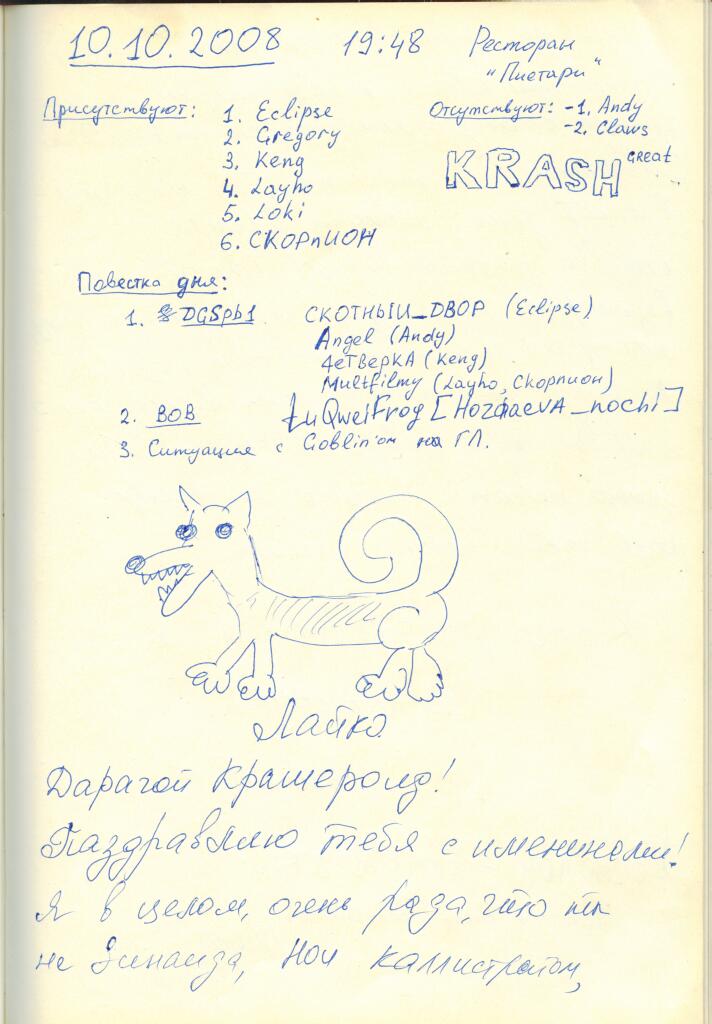 10.10.2008 19:48 Ресторан
"Пиетари"
Присутствуют: 1. Eclipse Отсутствуют: -1. Andy
2. Gregory -2. Claws
3. Keng KRASH GREat
4. Layho
5. Loki
6. СКОРпИОН
Повестка дня:
1. DGSpb1 СКОТНЫЙ_DВОР (Eclipse)
Angel (Andy)
4етВерКА (Keng)
Multfilmy (Layho, Скорпион)
2. ВОВ LuQweiFrog [HoziaevA_nochi]
3. Ситуация с Goblin'ом на ГЛ.
Лайко
Дарагой Крашеролд!
Паздравляю тебя с именинами!
Я в целом, очень рада, что ты
не Зинаида, Нои каллистратом,